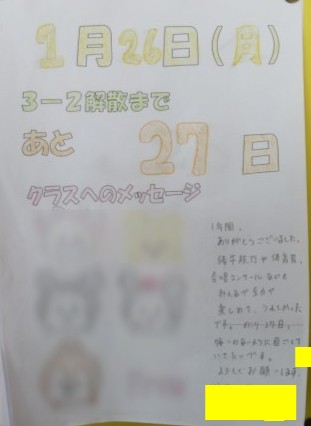 1月26日(月)
3-2解散まで
あと 27日
クラスへのメッセージ
1年間、
ありがとうございました。
体育祭、
合唱コンクールなども
みんなで全力で
楽しめて、うれしかった
です。あと27日、
いきたいです。
よろしくお願いします